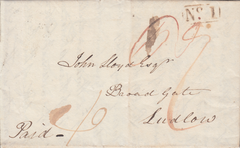 No. 1
John Lloyd Esqr
Broad Gate
Ludlow
Paid